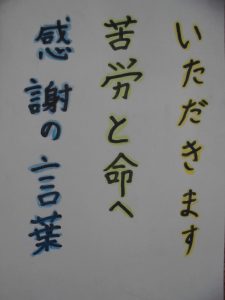 いただきます
苦労と命へ
感謝の言葉